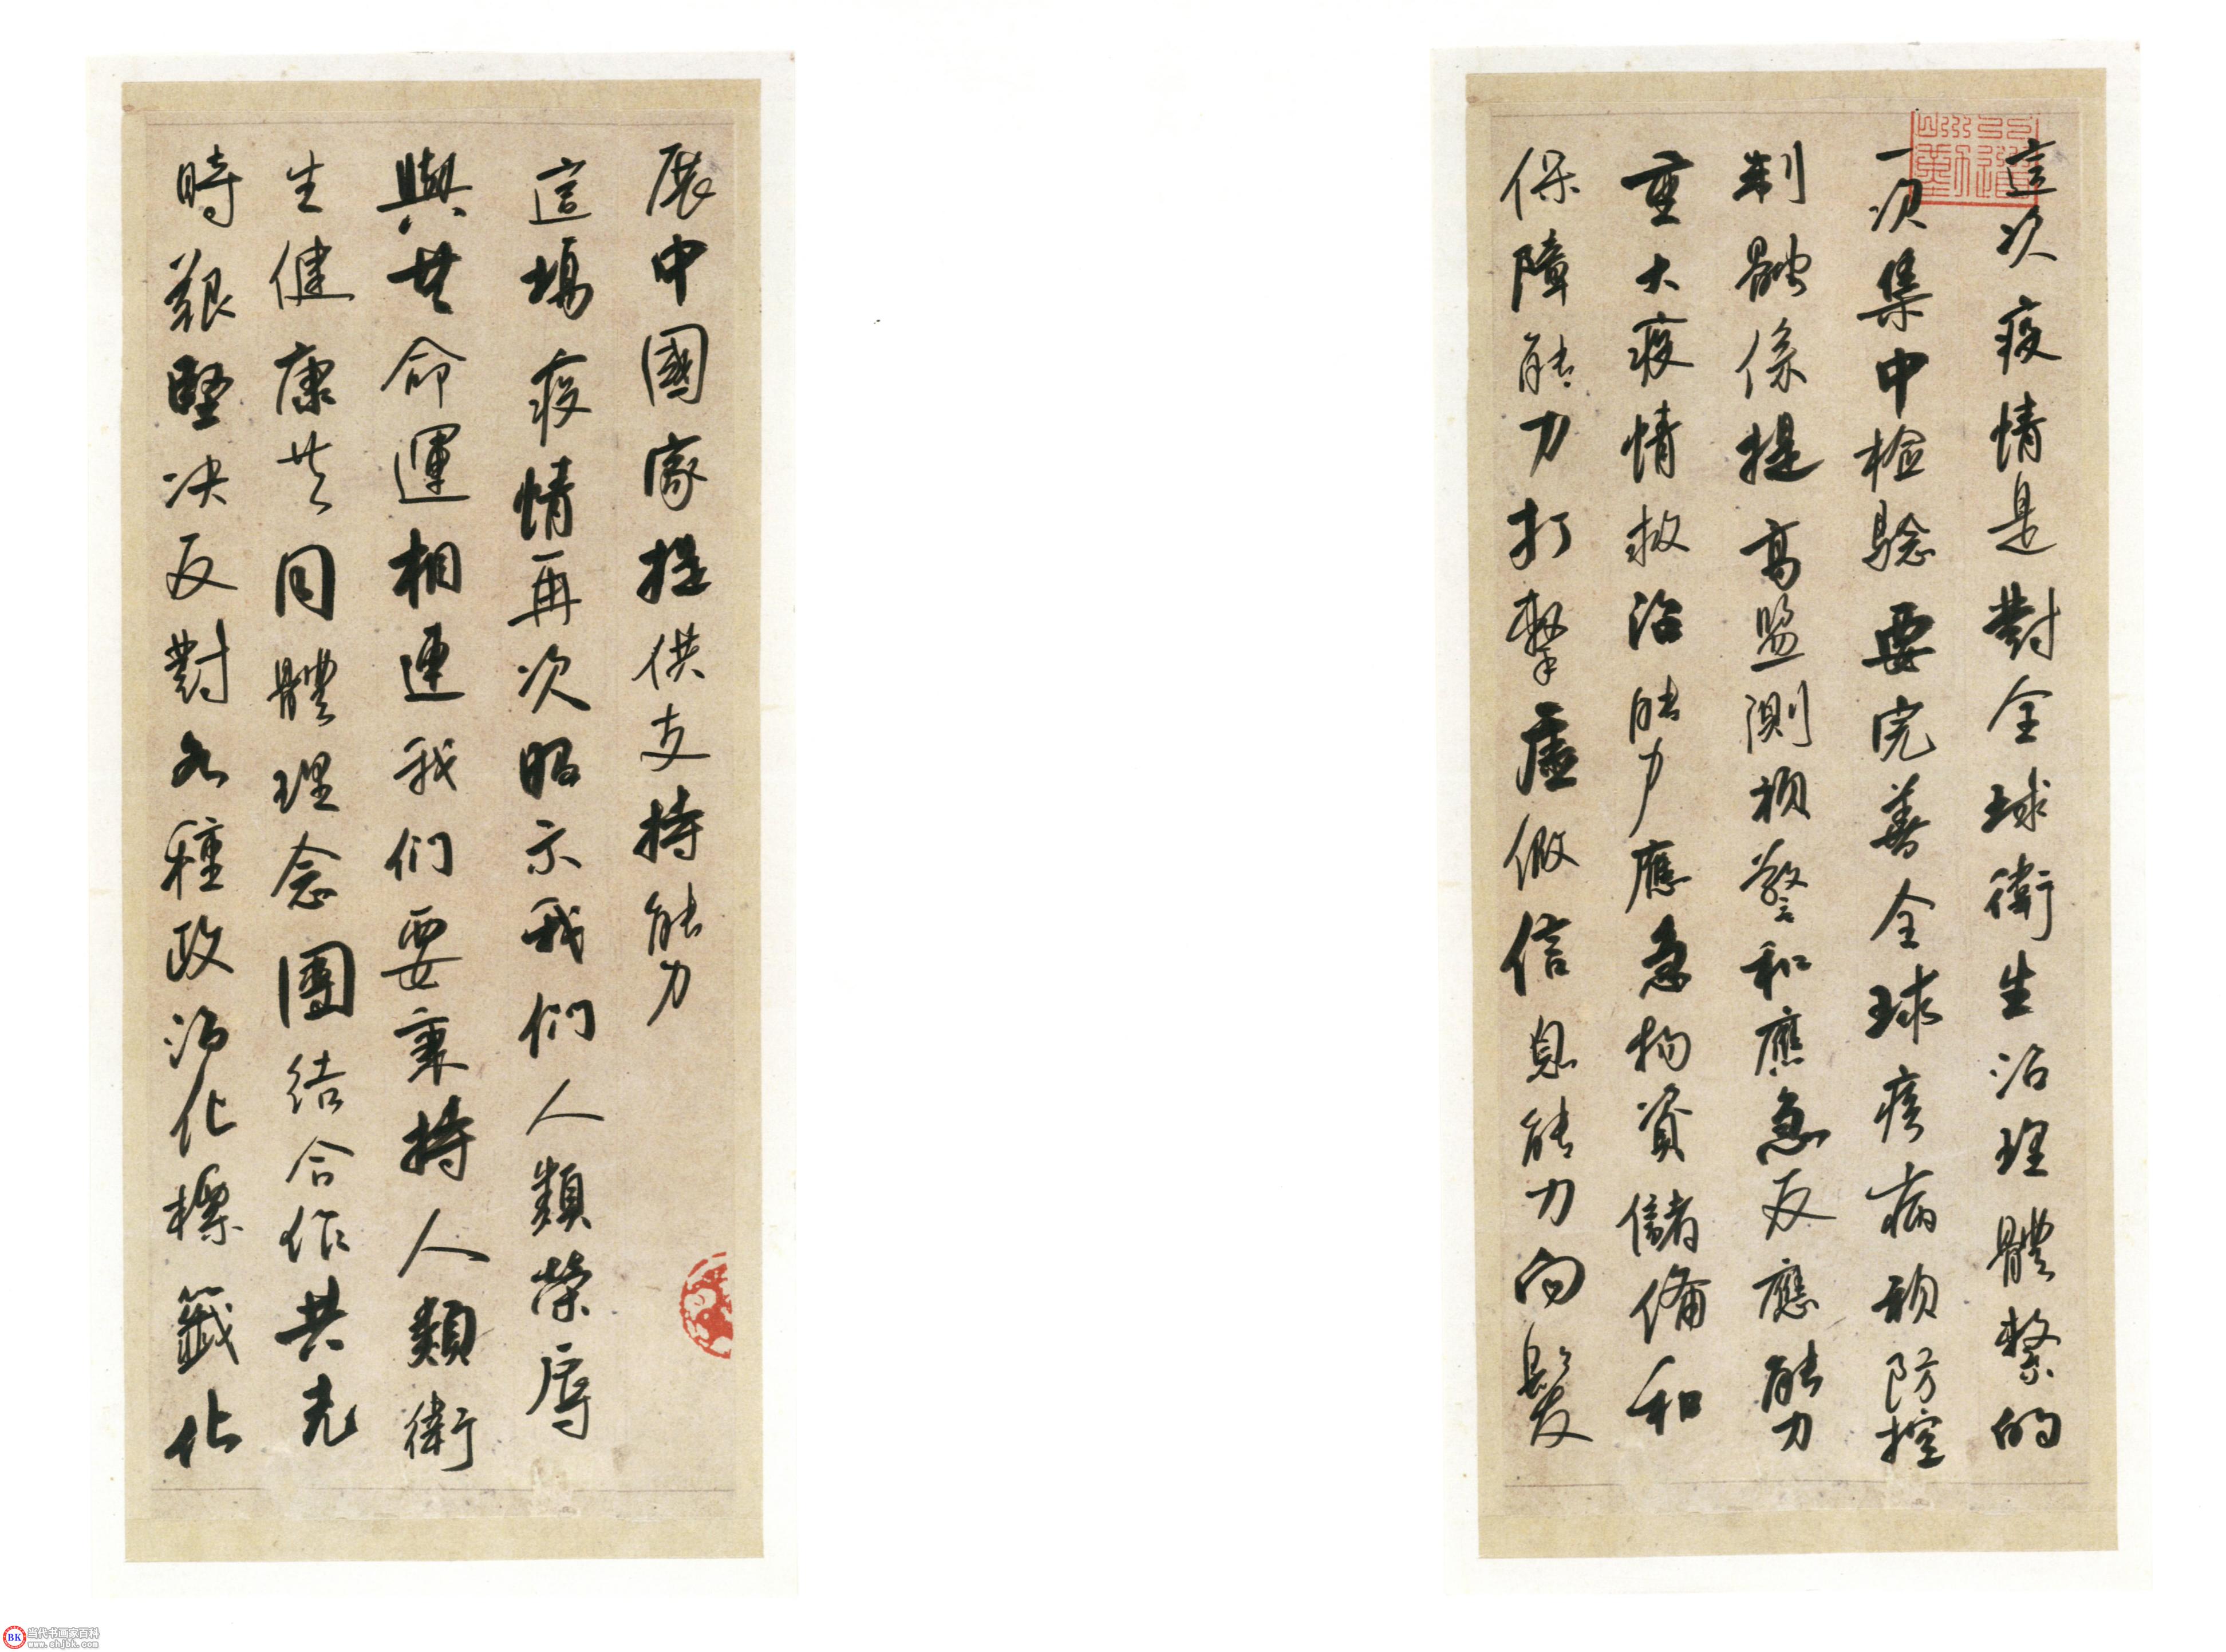 這次疫情是對全球衛生治理體系的
一次集中檢驗要完善全球疾病預防控
制體係提高監測預警和應急反應能力
重大疫情救治能力應急物資儲備和
保障能力打擊虛假信息能力向發
展中國家提供支持能力
這場疫情再次昭示我們人類榮辱
與共命運相連我們要秉持人類衛
生健康共同體理念團結合作共克
時艱堅決反對各種政治化標籤化
BK
当代书画家百科
www.shjbk.com